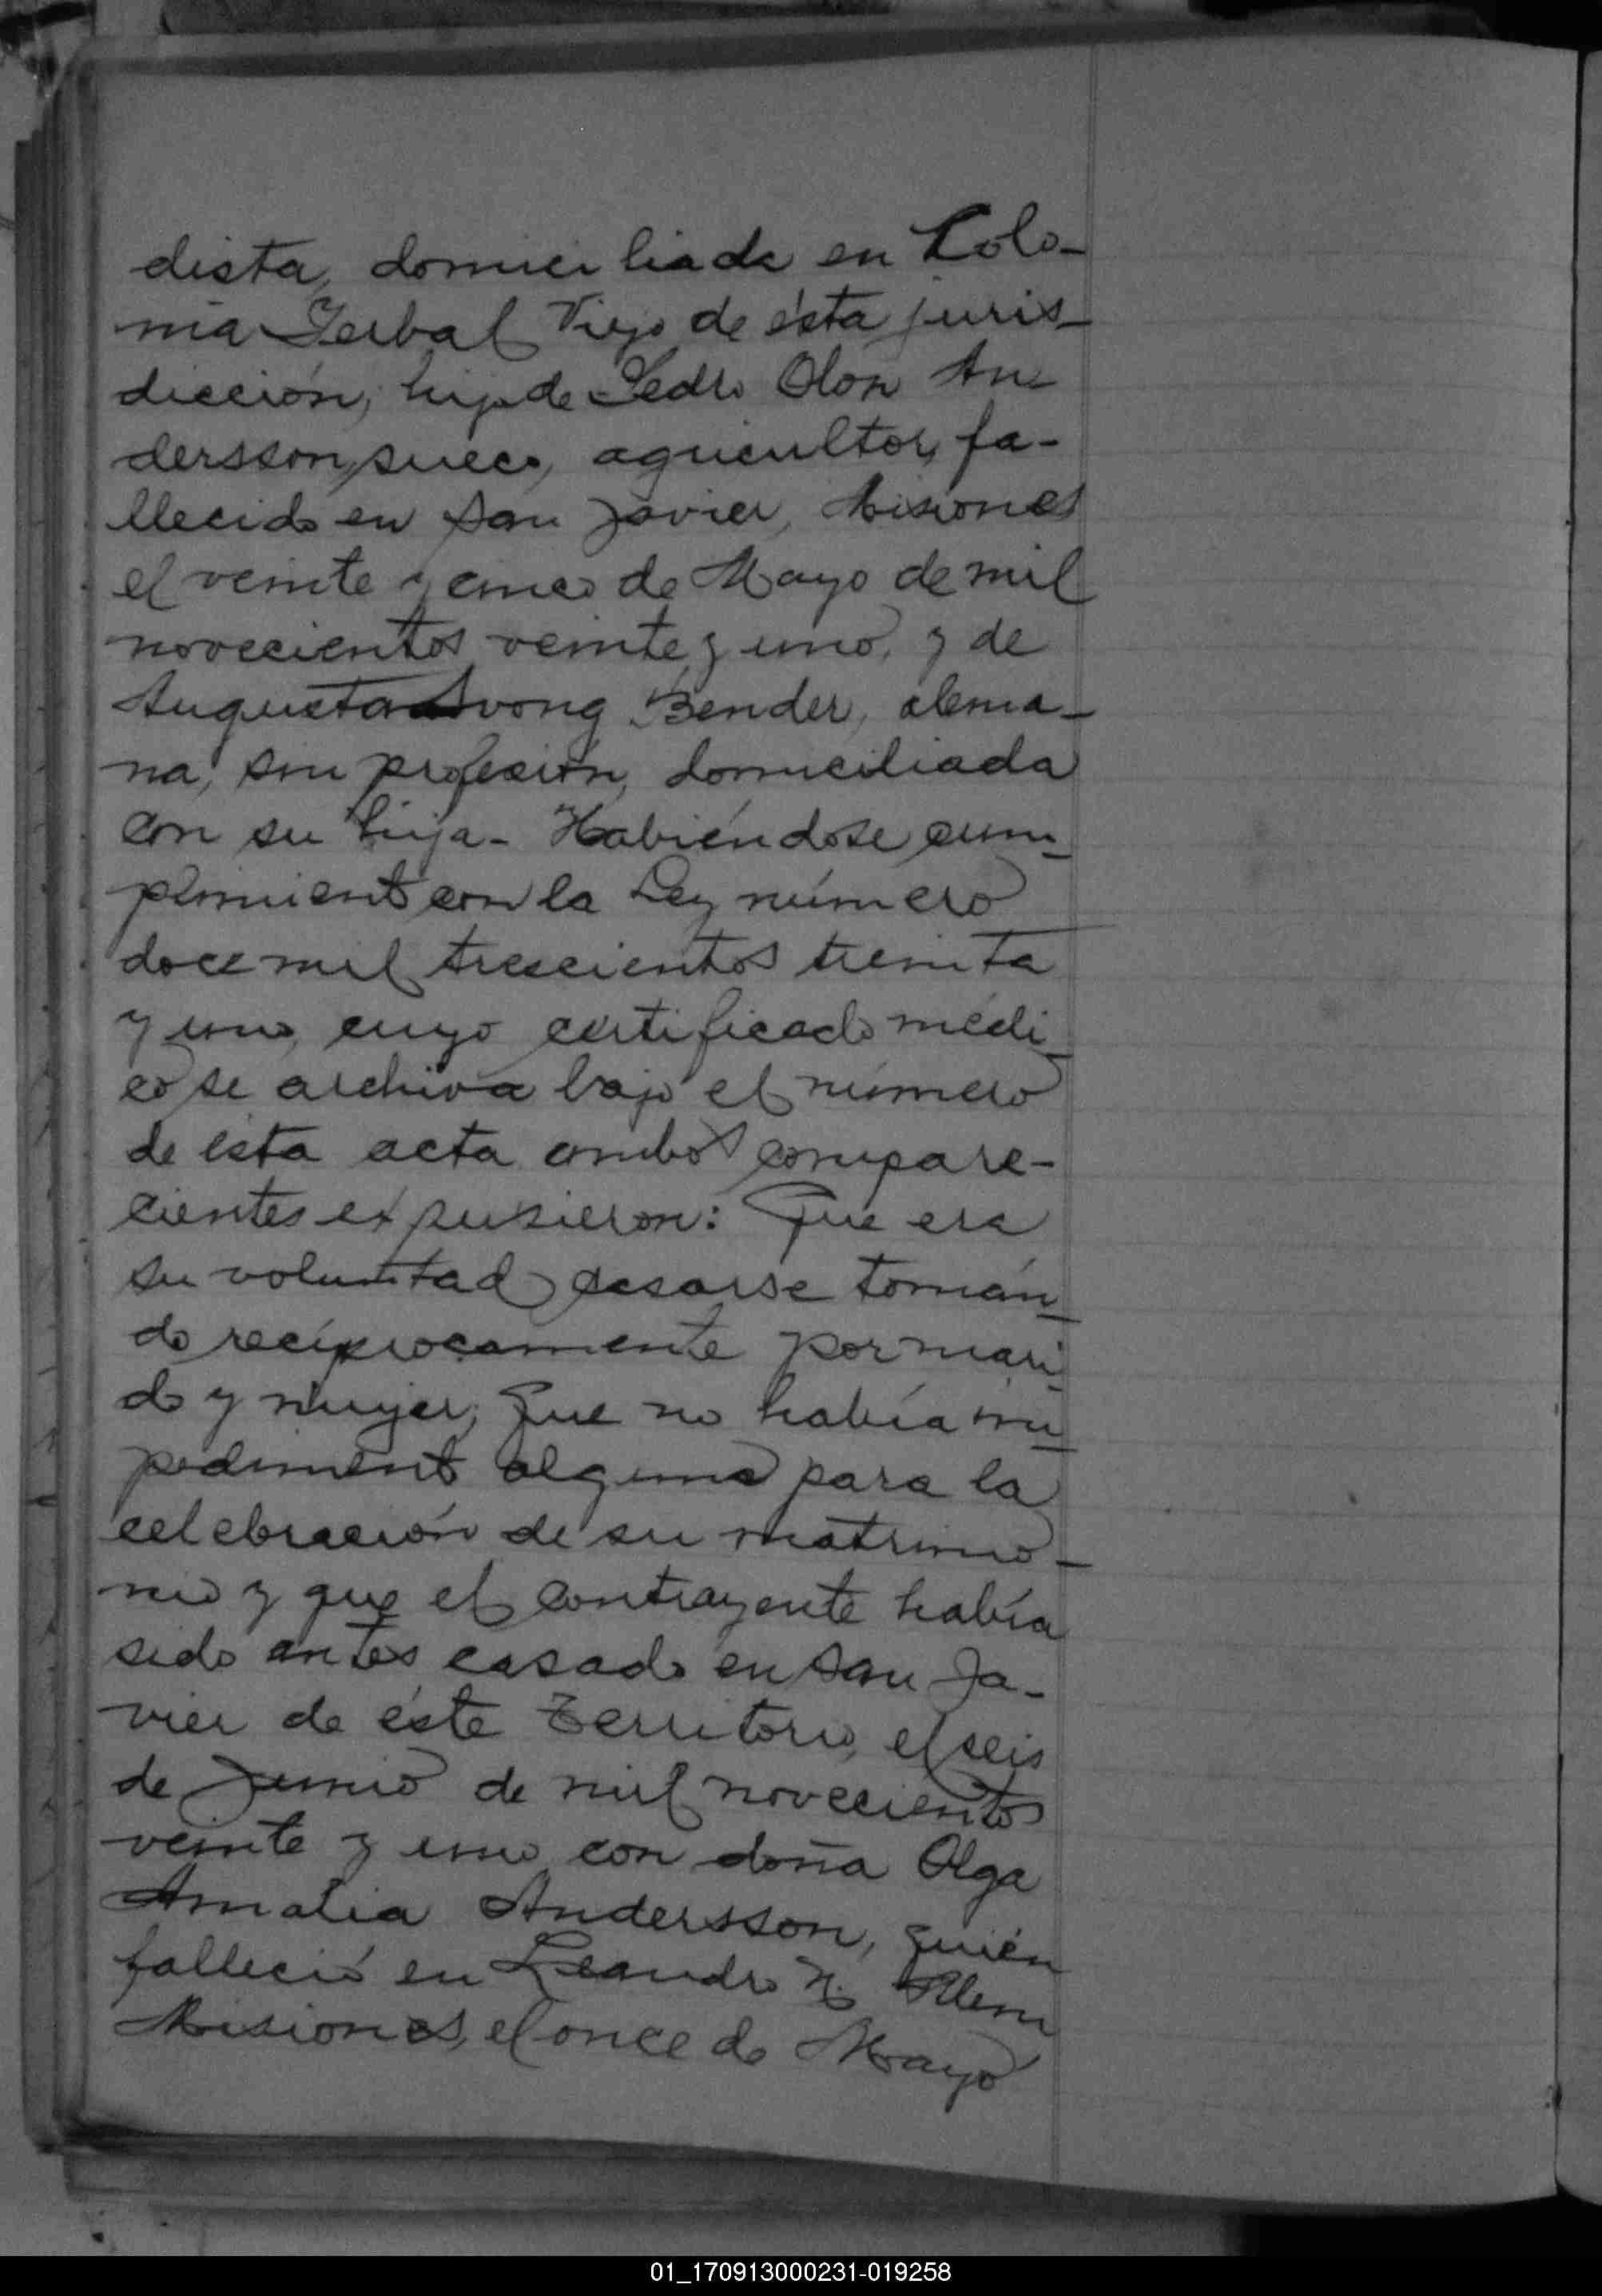 dista, domiciliada en Colo-
nia Yerbal Viejo de ésta juris-
dicción, hija de Pedro Olon An-
dersson, sueco, agricultor, fa-
llecido en San Javier, Misiones
el veinte y cinco de Mayo de mil
novecientos veinte y uno, y de
Augusta Bender, alema-
na, sin profesión, domiciliada
con su hija - Habiéndose cum-
plimiento con la Ley número
doce mil trescientos treinta
y uno, cuyo certificado médi-
co se archiva bajo el número
de ésta acta ambos compare-
cientes expusieron: Que era
su voluntad casarse tomán-
do recíprocamente por mari-
do y mujer, que no había im-
pedimento alguno para la
celebración de su matrimo-
nio y que el contrayente había
sido antes casado en San Ja-
vier de éste Territorio, el seis
de Junio de mil novecientos
veinte y uno con doña Olga
Amalia Andersson, quién
falleció en Leandro N. Alem
Misiones, el once de Mayo
01_170913000231-019258